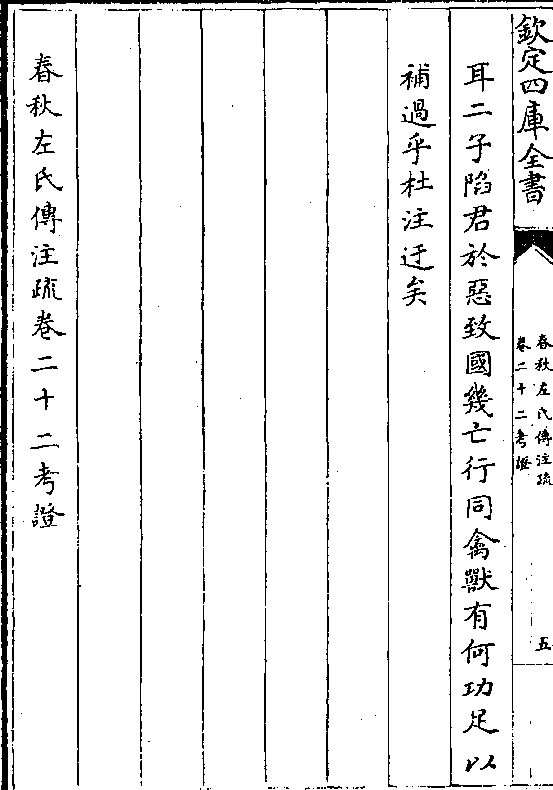 欽定四庫全書
春秋左氏傳注疏
卷二十二考證
五
耳二子陷君於惡致國幾亡行同禽獸有何功足以
補過乎杜注迂矣
春秋左氏傳注疏卷二十二考證